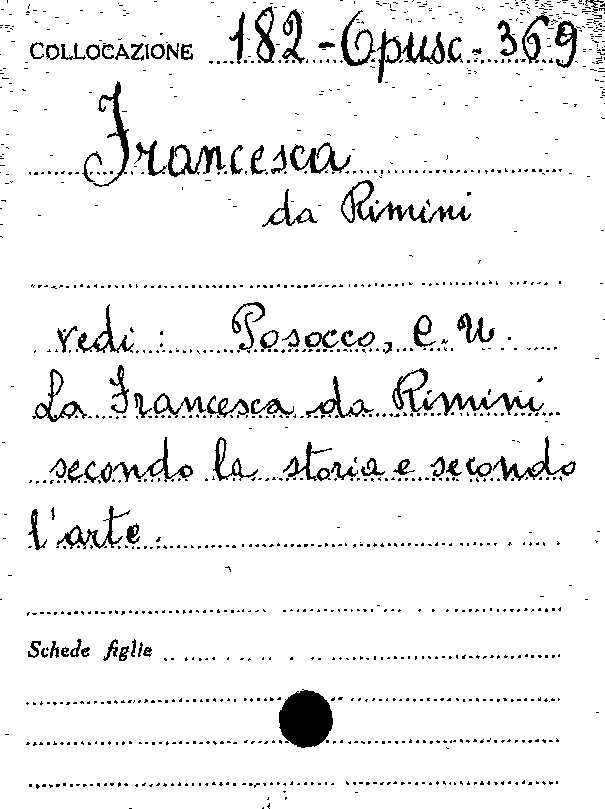 COLLOCAZIONE 182-Opusc. 369
Francesca
da Rimini
vedi: Posocco, C. U.
La Francesca da Rimini
secondo la storia e secondo
l'arte.
Schede figlie